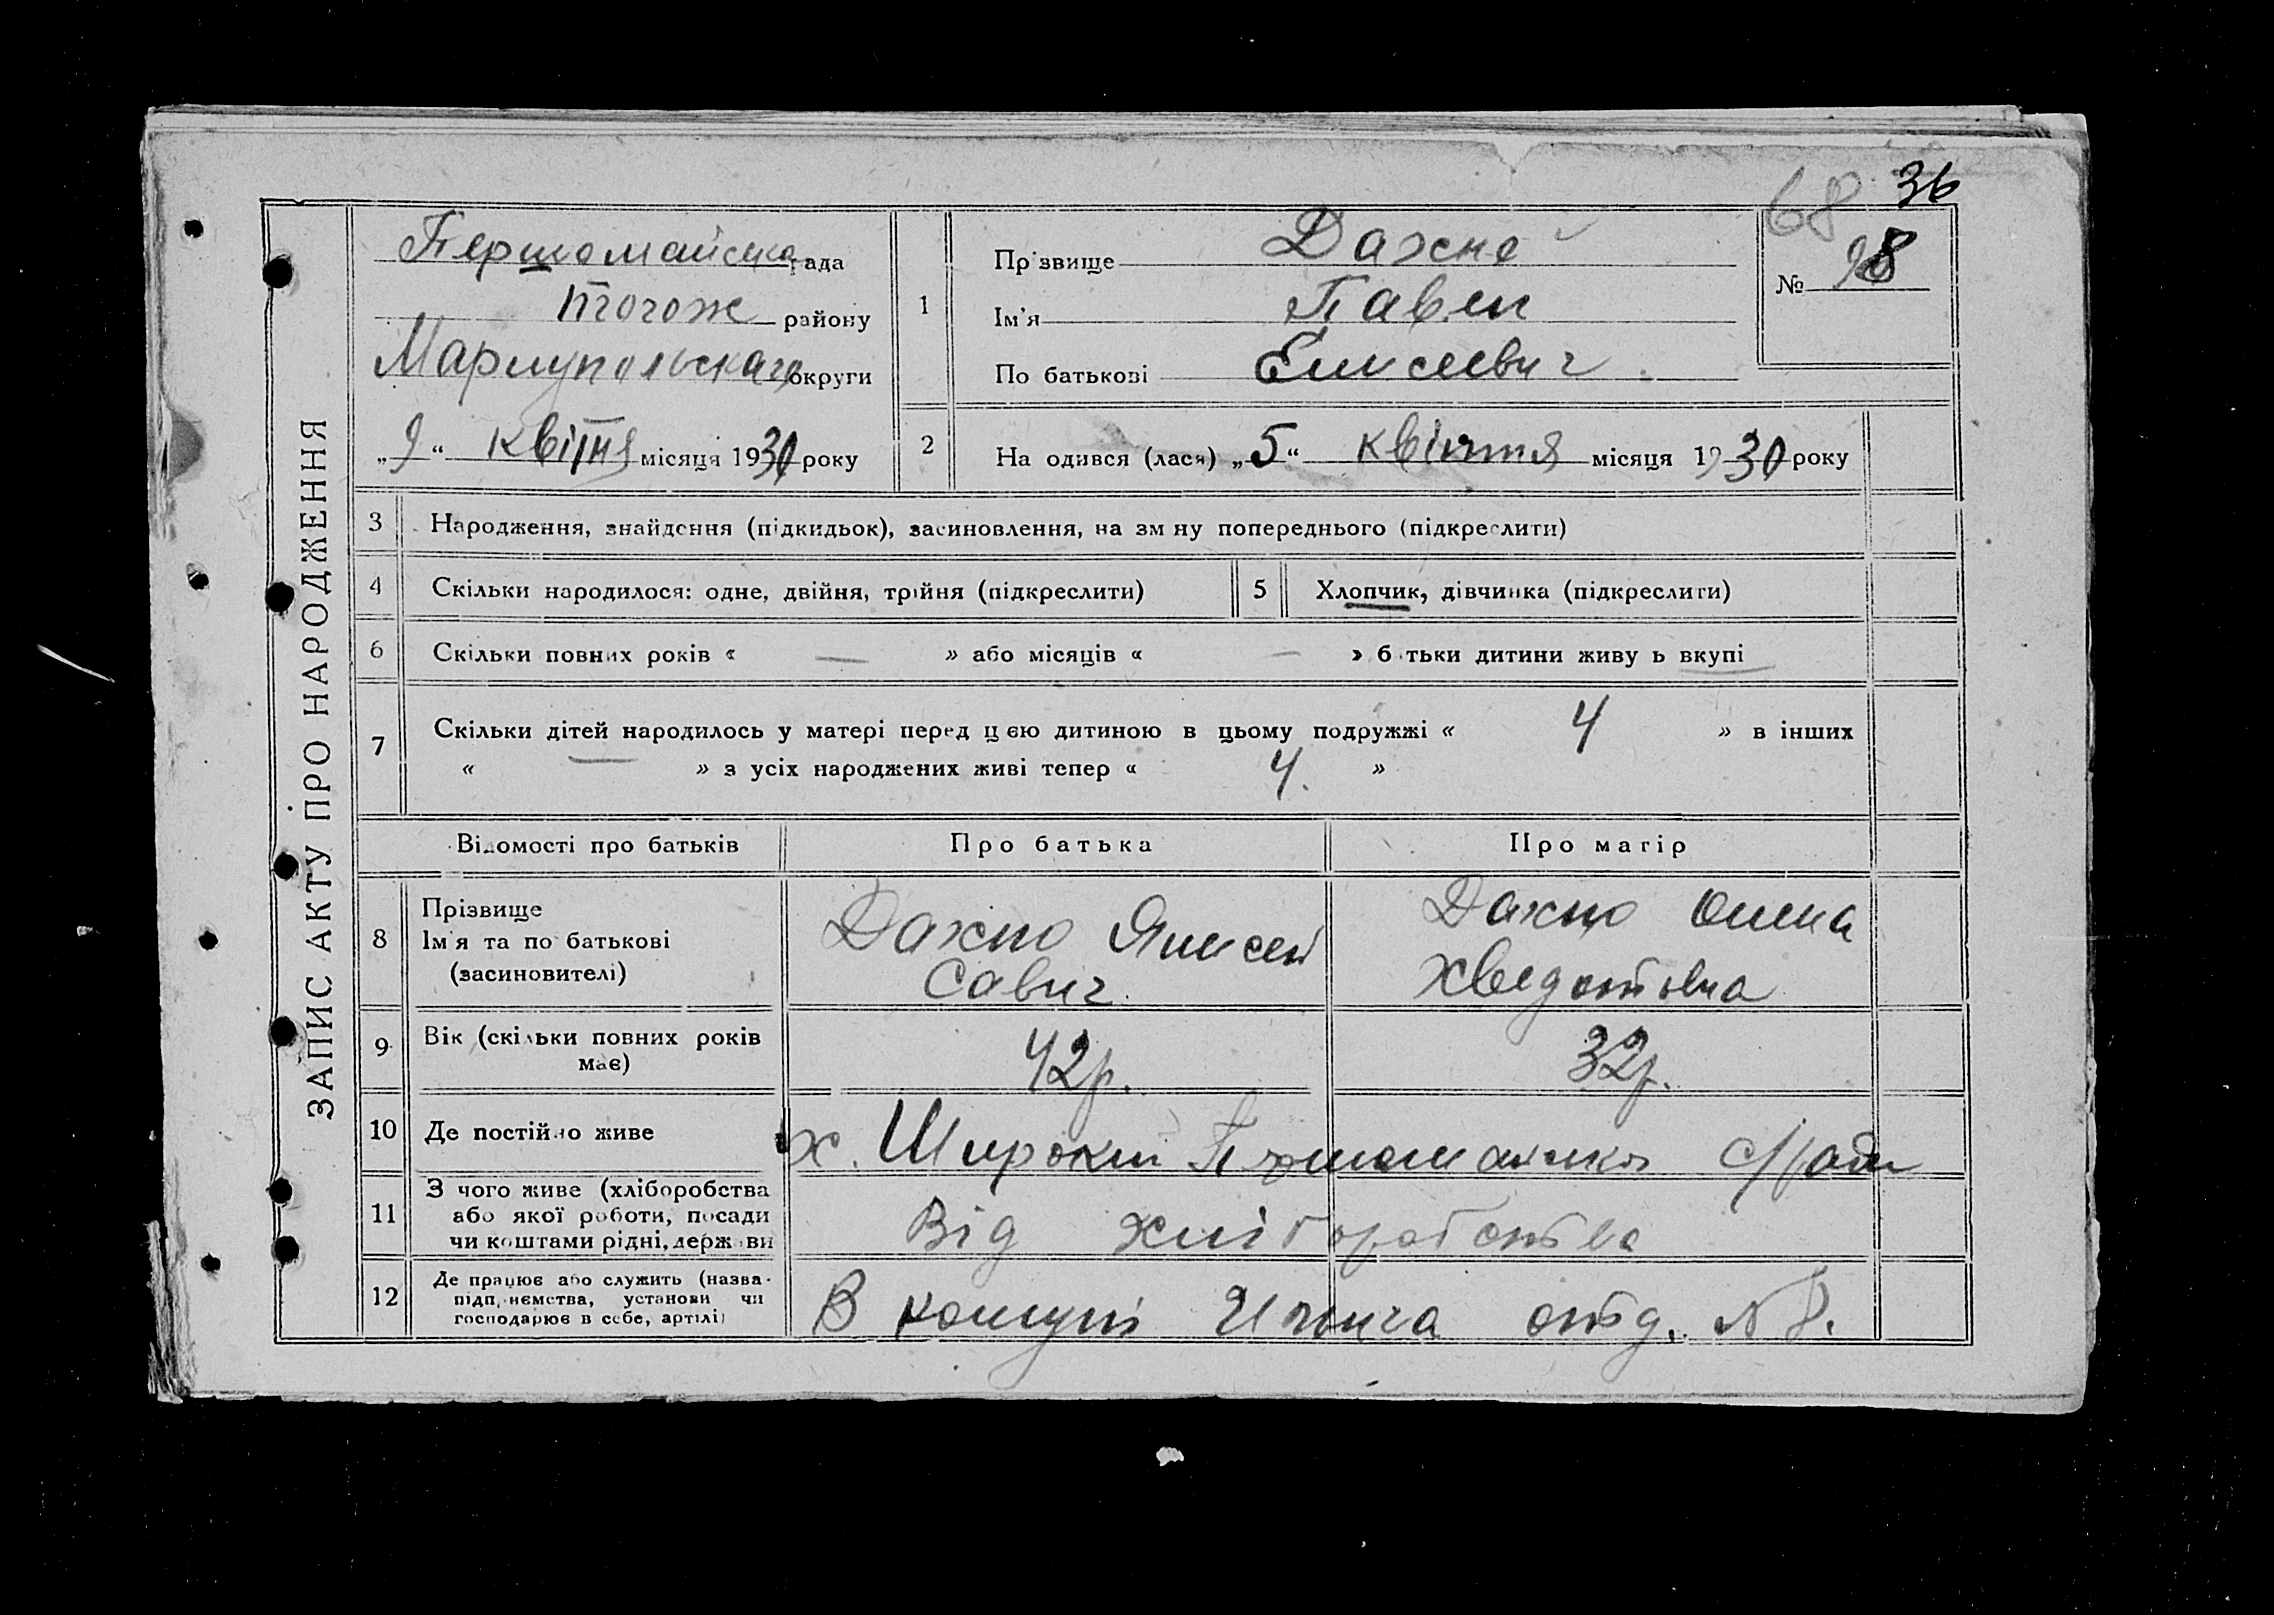 36
68
ЗАПИС АКТУ ПРО НАРОДЖЕННЯ
Першомайська рада
тогож району
Мариупольскаго округи
„9“ квітня місяця 1930 року
1
Прізвище Дахно
Ім'я Павел
По батькові Елисеевич
№ 98
2 На одився (лася) „5“ квінтня місяця 1930 року
3 Народження, знайдення (підкидьок), засиновлення, на зм ну попереднього (підкреслити)
4 Скільки народилося: одне, двійня, трійня (підкреслити)
5 Хлопчик, дівчинка (підкреслити)
6 Скільки повних років « — » або місяців « — » б тьки дитини живу ь вкупі
7 Скільки дітей народилось у матері перед цією дитиною в цьому подружжі « 4 » в інших
« — » з усіх народжених живі тепер « 4. »
Відомості про батьків
Про батька
Про матір
8 Прізвище
Ім'я та по батькові
(засиновителі)
Дахно Ялисей
Савич.
Дахно Олена
Хведотовна
9 Вік (скільки повних років
має)
42р.
32р.
10 Де постійно живе
х. Широкий Першомайської с/ради
11 З чого живе (хліборобства
або якої роботи, посади
чи коштами рідні, держави
Від хліборобства
12 Де працює або служить (назва
підприємства, установи чи
господарює в себе, артілі)
В комуні Ілліча отд. №